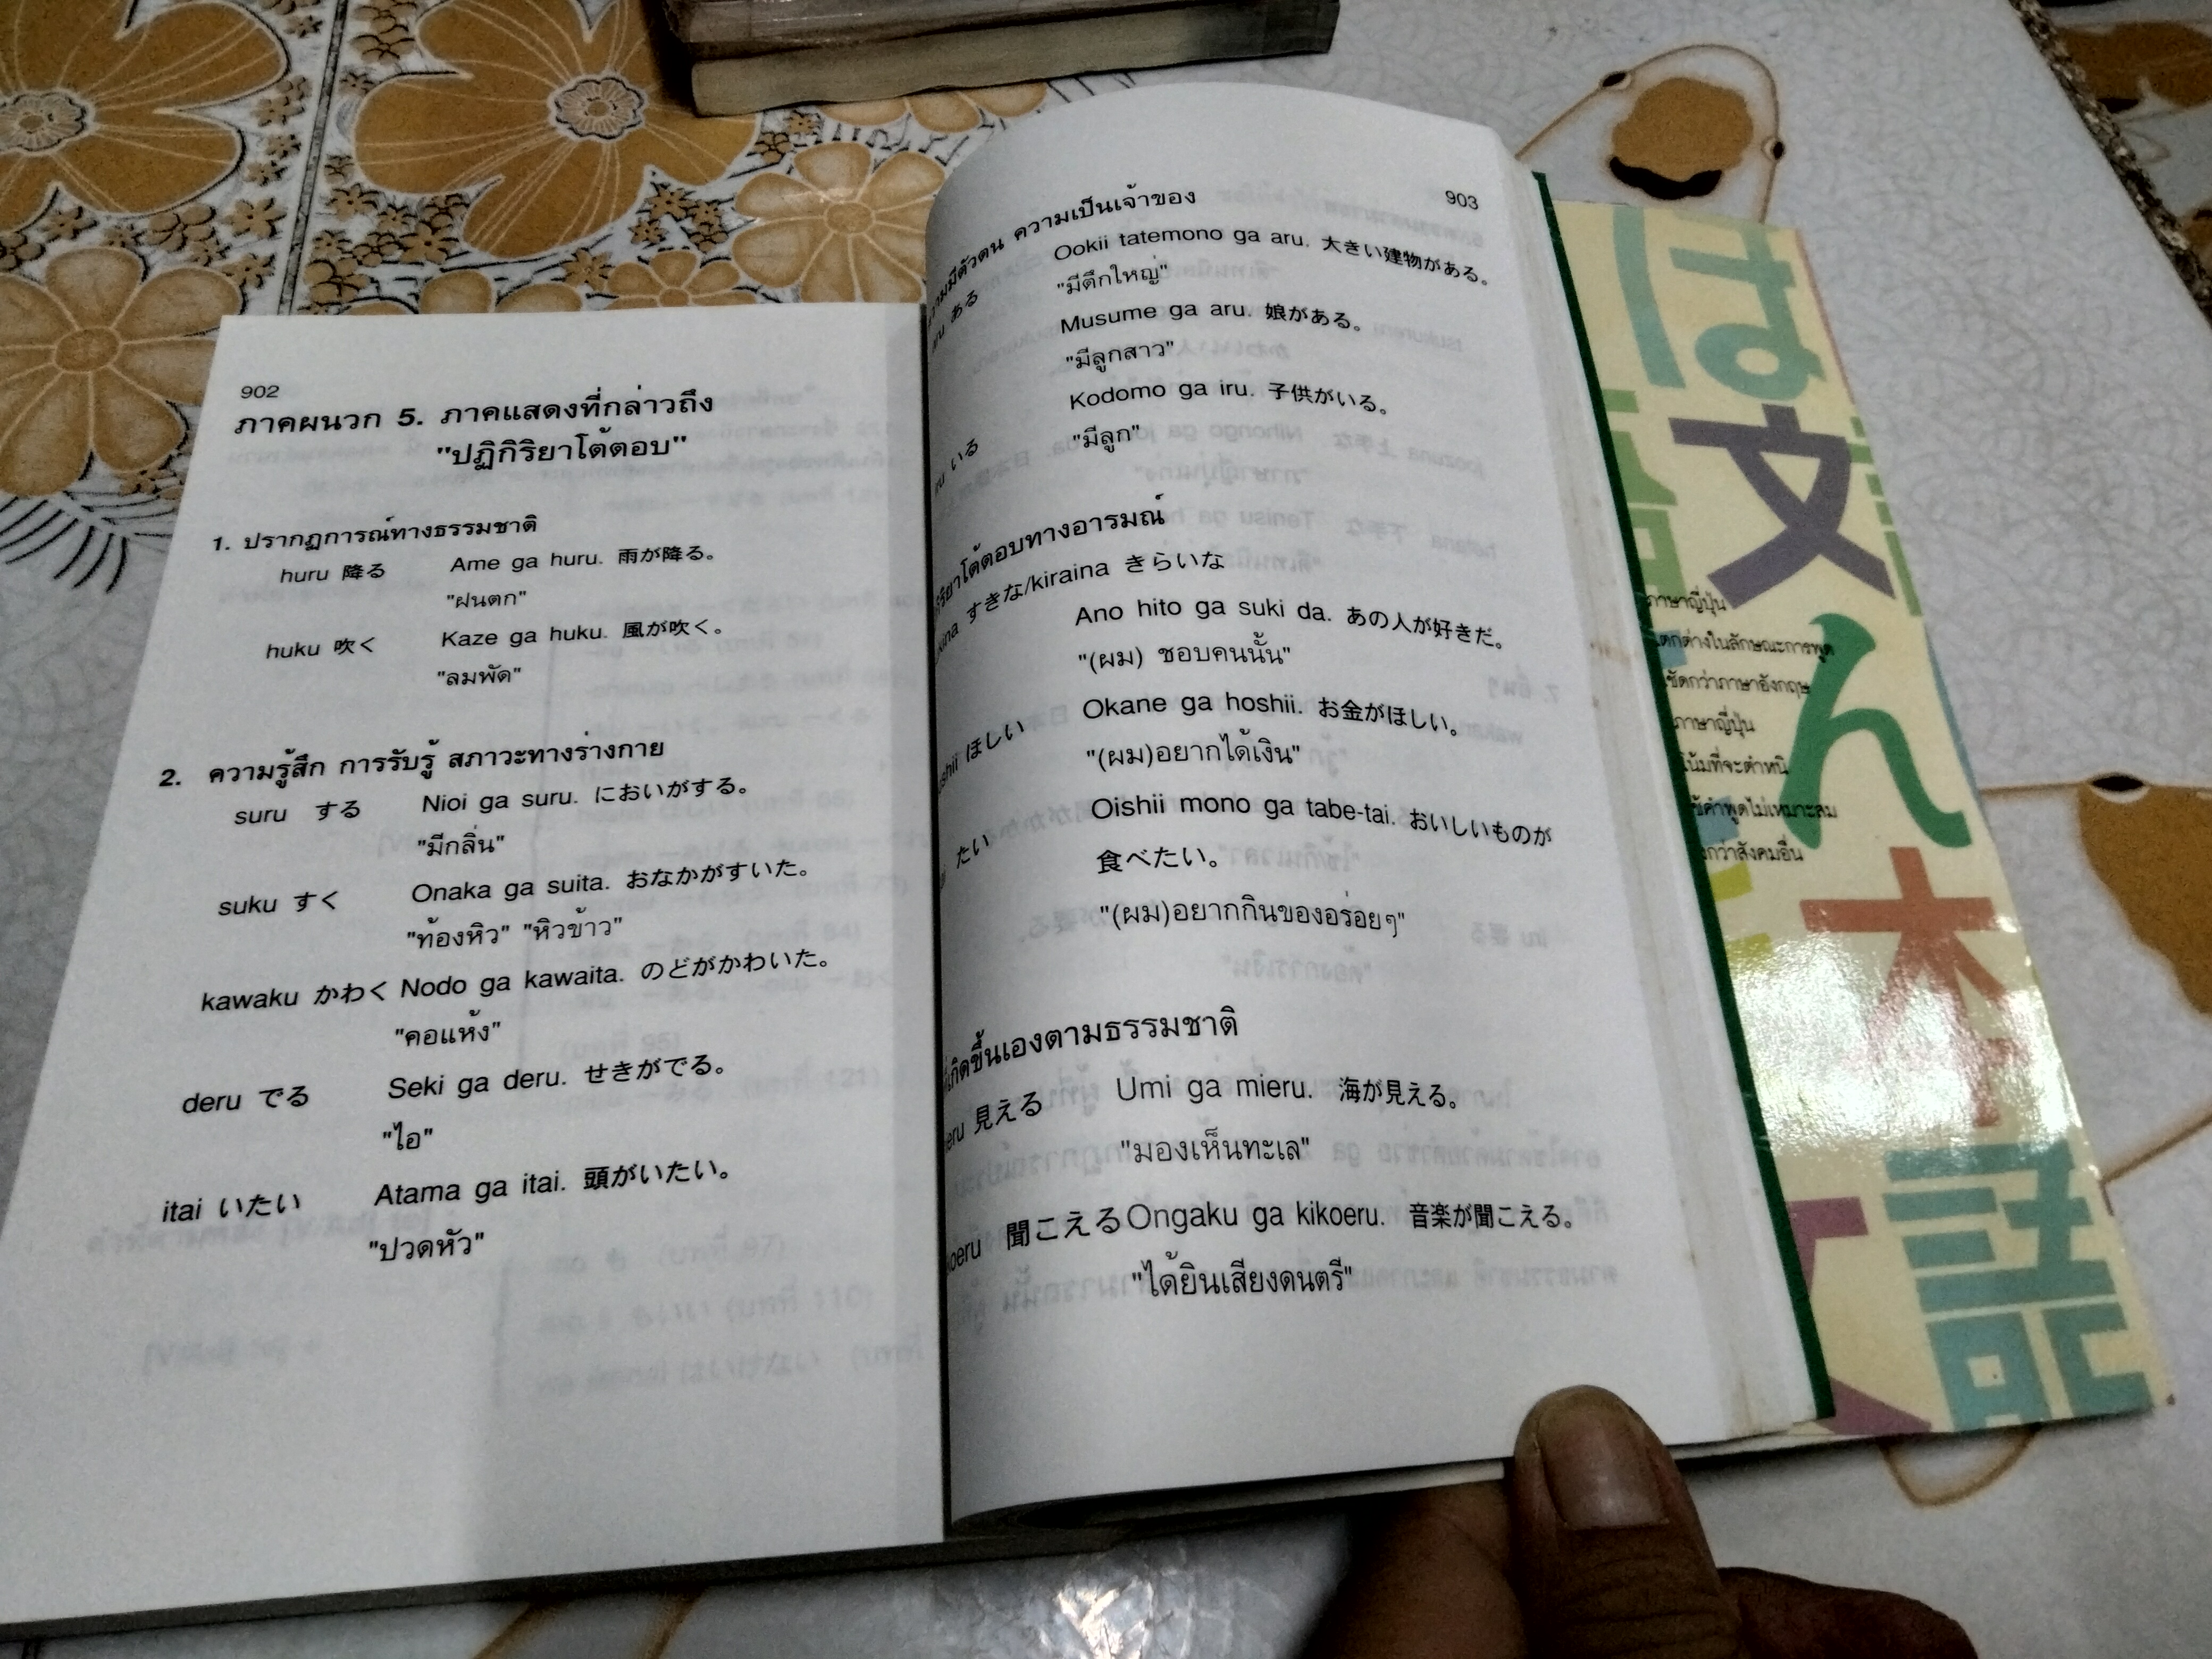 902
ภาคผนวก 5. ภาคแสดงที่กล่าวถึง
"ปฏิกิริยาโต้ตอบ"
1. ปรากฏการณ์ทางธรรมชาติ
huru 降る Ame ga huru. 雨が降る。
"ฝนตก"
huku 吹く Kaze ga huku. 風が吹く。
"ลมพัด"
2. ความรู้สึก การรับรู้ สภาวะทางร่างกาย
suru する Nioi ga suru. においがする。
"มีกลิ่น"
suku すく Onaka ga suita. おなかがすいた。
"ท้องหิว" "หิวข้าว"
kawaku かわく Nodo ga kawaita. のどがかわいた。
"คอแห้ง"
deru でる Seki ga deru. せきがでる。
"ไอ"
itai いたい Atama ga itai. 頭がいたい。
"ปวดหัว"
903
ความเป็นเจ้าของ
ある Ookii tatemono ga aru. 大きい建物がある。
"มีตึกใหญ่"
Musume ga aru. 娘がある。
"มีลูกสาว"
いる Kodomo ga iru. 子供がいる。
"มีลูก"
โต้ตอบทางอารมณ์
すきな/kiraina きらいな
Ano hito ga suki da. あの人が好きだ。
"(ผม) ชอบคนนั้น"
ほしい Okane ga hoshii. お金がほしい。
"(ผม)อยากได้เงิน"
たい Oishii mono ga tabe-tai. おいしいものが
食べたい。
"(ผม)อยากกินของอร่อยๆ"
เกิดขึ้นเองตามธรรมชาติ
見える Umi ga mieru. 海が見える。
"มองเห็นทะเล"
聞こえる Ongaku ga kikoeru. 音楽が聞こえる。
"ได้ยินเสียงดนตรี"
は
文
ん
本
語
ภาษาญี่ปุ่น
แตกต่างในลักษณะการพูด
ชัดกว่าภาษาอังกฤษ
ภาษาญี่ปุ่น
โน้มที่จะตำหนิ
ใช้คำพูดไม่เหมาะสม
กว่าสังคมอื่น